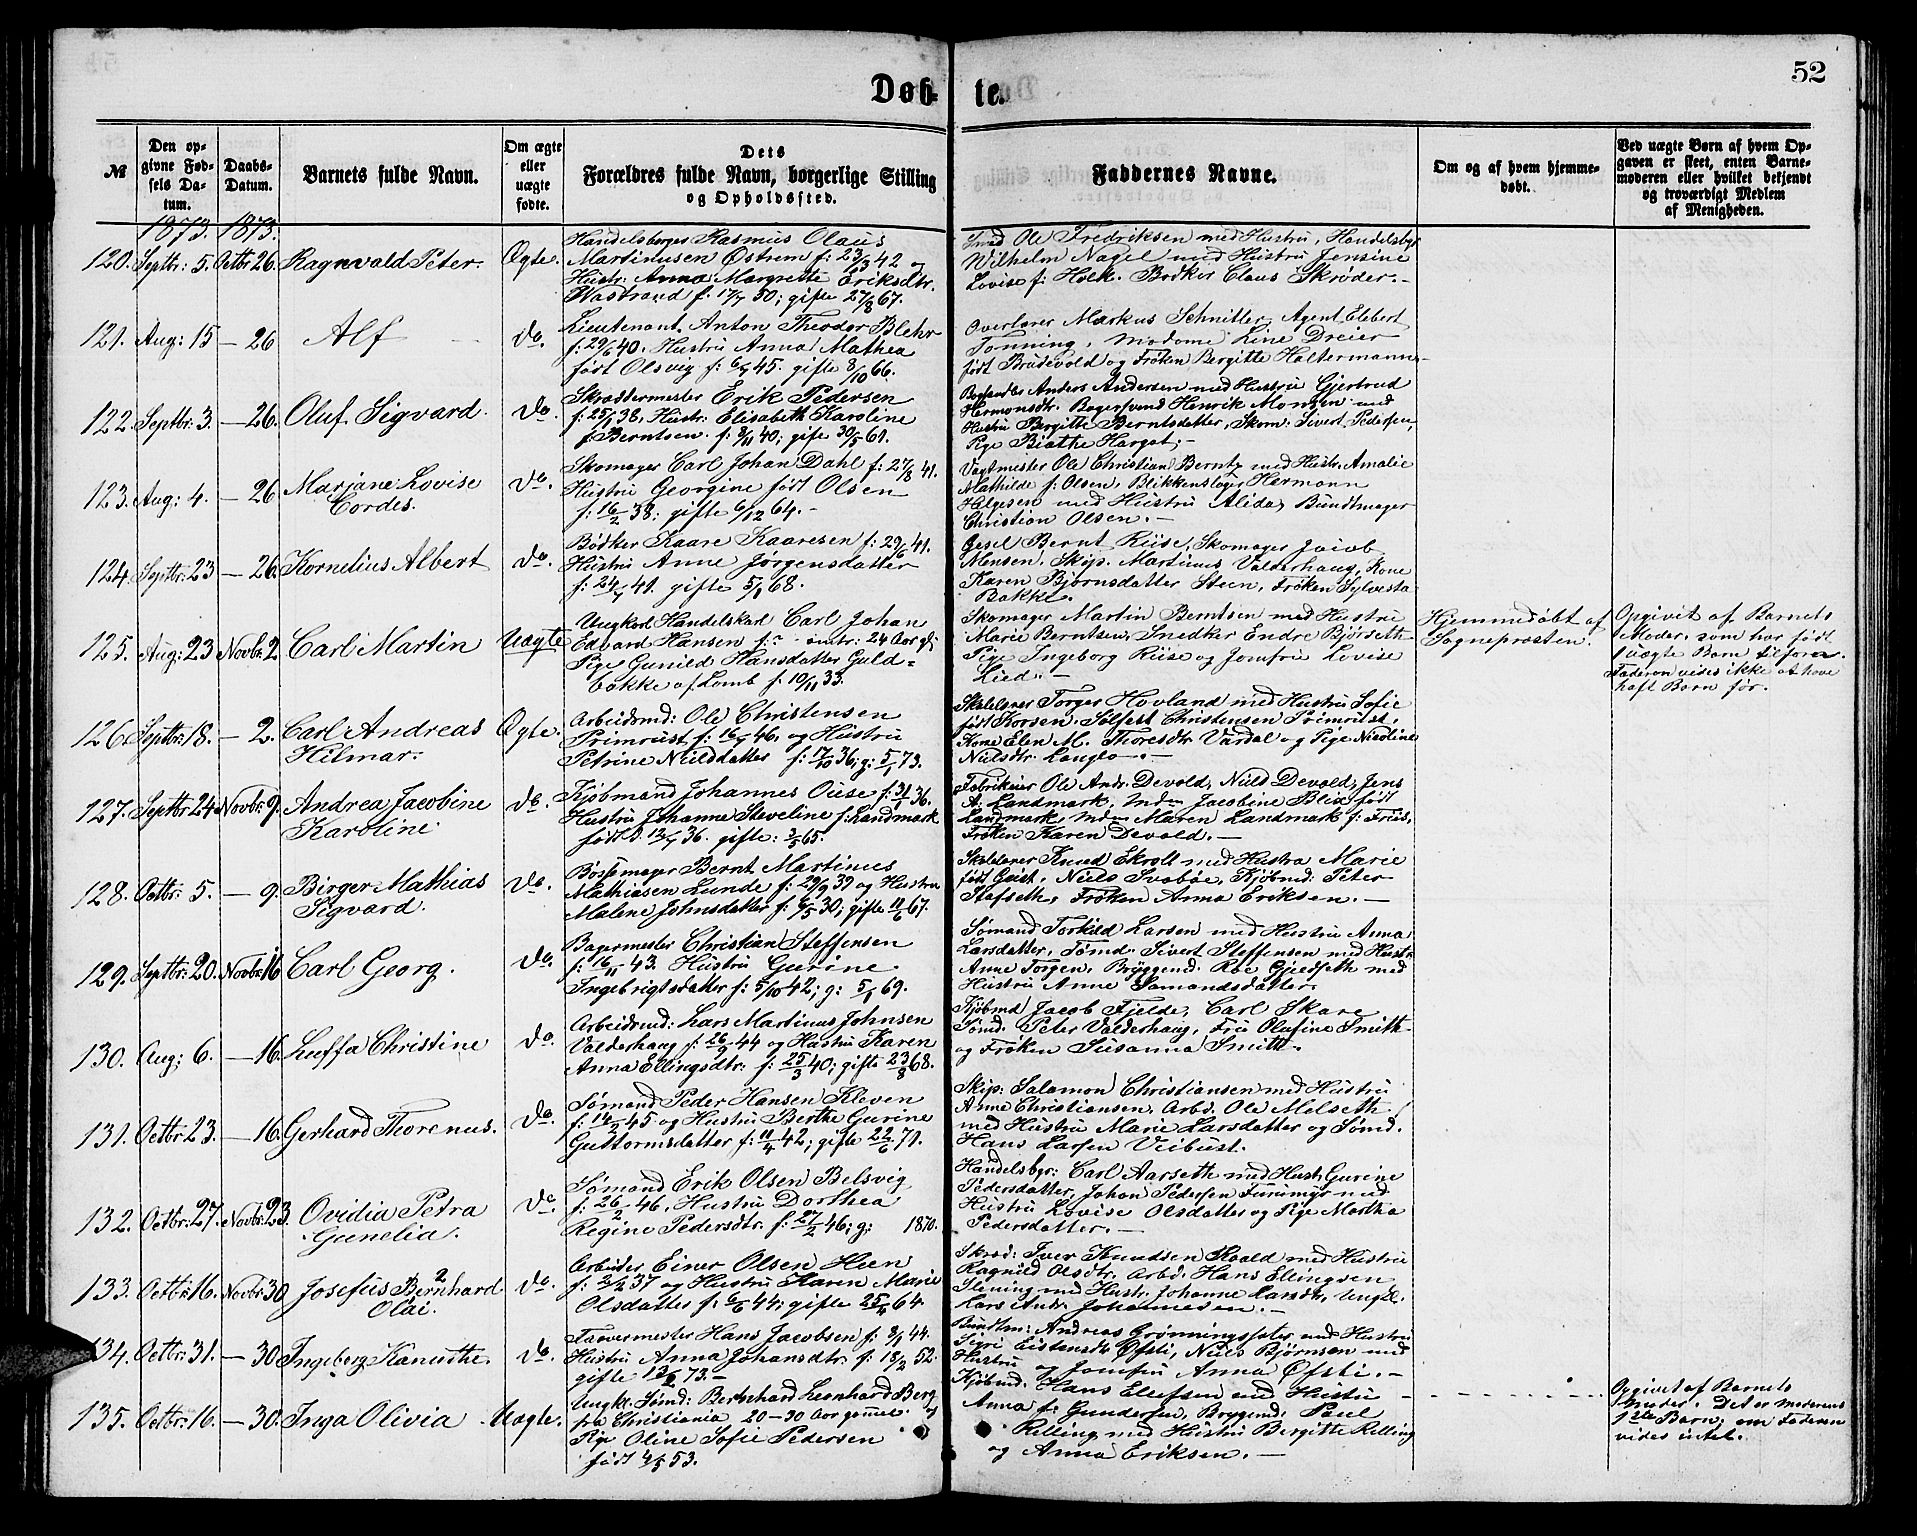 52
Døb- te.
№
Den op-
givne Fød-
sels Da-
tum.
Daabs-
Datum.
Barnets fulde Navn.
Om ægte
eller
uægte
fødte.
Dets
Forældres fulde Navn, borgerlige Stilling
og Opholdssted.
Faddernes Navne.
Om og af hvem hjemme-
døbt.
Ved uægte Børn af hvem Op-
gaven er skeet, enten Barne-
moderen eller hvilket bekjendt
og troværdigt Medlem
af Menigheden.
1873. 1873.
120. Septbr: 5. Octbr 26. Ragnvald Peter. Ægte.
Handelsborger Rasmus Olaus
Martinusen Østrem f: 23/3 42 og
Hustr: Anna Margrette Eriksdtr.
Nastrand f. 17/7 50; gifte 27/8 67.
Smed Ole Fredriksen med Hustru, Handelsbgr
Wilhelm Nagel med Hustru Jensine
Lovise f: Holk. Bødker Claus Skrøder.-
121. Aug: 15 - 26 Alf do.
Lieutenant Anton Theodor Blehr
f: 29/6 40. Hustru Anna Mathea
født Olsvig f: 6/5 45. gifte 8/10 66.
Overlærer Markus Schnitler, Agent Elebert
Tonning, Madame Line Dreier
født Brudevold og Frøken Bergitte Haltermann
122. Septbr: 3. - 26. Oluf Sigvard. do.
Skræddermester Erik Pedersen
f: 25/1 38, Hustr: Elisabeth Karoline
f: Berntsen. f: 8/11 40; gifte 30/5 61.
Anders Andersen med Hustru Gjertrud
Hermonsdtr. Bagersvend Henrik Monsen med
Hustru Bergitte Berntsdatter, Skom: Sivert Pedersen,
Pige Biathe Harget;-
123. Aug: 4. - 26 Marjane Lovise
Cordes. do.
Skomager Carl Johan Dahl f: 27/8 41.
Hustru Georgine født Olsen
f: 16/2 38; gifte 6/12 64.-
Vagtmester Ole Christian Berntz med Hustr: Amalie
Mathilde f: Olsen, Blikkenslager Hermann
Helgesen med Hustru Alida, Bundtmager
Christian Olsen.-
124. Septbr: 23 - 26. Kornelius Albert do.
Bødker Kaare Kaaresen f: 29/6 41.
Hustru Anne Jørgensdatter
f: 24/7 41. gifte 5/1 68.
Gesel Bernt Riise, Skomager Jacob
Monsen, Skip. Martinus Valderhaug, Kone
Karen Bjørnsdatter Steen, Frøken Sylvesta
Bakke.
125. Aug: 23 Novbr. 2 Carl Martin Uægte
Ungkarl Handelskarl Carl Johan
Edvard Hansen f: ? omtr: 24 Aar gl;
Pige Gunild Hansdatter Guld=
bakke af Lomb f: 10/11 33.
Skomager Martin Berntsen med Hustru
Marie Berntsen, Snedker Endre Bjørseth
Pige Ingeborg Riise og Jomfru Lovise
Lied.-
Hjemmedøbt af
Sognepresten.
Opgivet af Barnets
Moder, som har født
1 uægte Barn tilforn.
Faderen vides ikke at have
haft Barn før.
126. Septbr: 18. - 2. Carl Andreas
Hilmar. Ægte.
Arbeidsmd: Ole Christensen
Primrust f: 16/5 46. og Hustru
Petrine Nielsdatter f: 17/10 36; g: 5/1 73.
Skolelærer Torger Hovland med Hustru Sofie
født Korsen, Sølfest Christensen Primrust,
Kone Elen M. Thoresdtr Vardal og Pige Nicoline
Nielsdtr. Langlo.-
127. Septbr 24 Novbr: 9. Andrea Jacobine
Karoline. do.
Kjøbmand Johannes Ouse f: 31/1 36.
Hustru Johanne Steveline f: Landmark
født d. 13/7 36. gifte: 3/5 65.
Fabrikeier Ole Andr. Devold, Nils Devold, Jens
A. Landmark, Jacobine Blix født
Landmark, Maren Landmark f: Friis,
Frøken Karen Devold.-
128. Octbr: 5. - 9. Birger Mathias
Sigvard. do.
Børsemager Bernt Martinus
Mathiasen Lunde f: 29/9 39 og Hustru
Malene Johnsdatter f: 6/5 30; gifte 11/6 67.
Skolelærer Knud Ekroll med Hustru Marie
født Qvist, Niels Svobøe, Kjøbmd: Peter
Stafseth, Frøken Anna Eriksen.-
129. Septbr: 20. Novbr: 16 Carl Georg. do.
Bagermester Christian Steffensen
f: 16/11 43. Hustru Gurine
Ingebrigtsdatter f: 5/10 42; g: 5/1 69.
Sømand Torkild Larsen med Hustru Anna
Larsdatter, Tømd: Sivert Steffensen med Hustr:
Anne Torgen, Bryggemd. Roe Gjedseth med
Hustru Anne Samandsdatter.
130. Aug: 6. - 16. Luffa Christine do.
Arbeidsmd: Lars Martinus Johnsen
Valderhaug f: 26/9 44 og Hustru Karen
Anna Ellingsdtr. f: 25/3 40; gifte 23/8 68.
Kjøbmd Jacob Fjelde, Carl Skare
Sømd. Peter Valderhaug, Fru Olafine Smith
og Frøken Susanna Smith.
131. Octbr: 23. - 16. Gerhard Thorenus. do.
Sømand Peder Hansen Kleven
f: 14/2 45 og Hustru Berthe Gurine
Guttormsdatter f: 11/4 42; gifte 22/6 71.
Skip: Salamon Christiansen med Hustru
Anne Christiansen, Arbd. Ole Melseth
med Hustru Marie Larsdatter og Sømd.
Hans Larsen Veibust.
132. Octbr: 27. Novbr: 23. Ovidia Petra
Gunelia. do.
Sømand Erik Olsen Belsvig
f: 26/2 46, Hustru Dorthea
Regine Pedersdtr. f: 27/2 46; g: 1870.
Handelsbgr: Carl Aarseth med Hust: Gurine
Pedersdatter, Johan Pedersen Furemyr med
Hustru Lovise Olsdatter og Pige Martha
Pedersdatter.-
133. Octbr: 16. Novbr: 30 Josefus Bernhard
Olai. do.
Arbeider Einer Olsen Heen
f: 2/2 37 og Hustru Karen Marie
Olsdatter f: 6/6 44; gifte 25/4 64.
Skræd: Iver Knudsen Roald med Hustru
Ragnild Olsdtr. Arbd. Hans Ellingsen
Slening med Hustr: Johanne Larsdtr, Ungk.
Lars Andr. Johannesen.-
134. Octbr: 31. - 30 Ingeborg Kanutthe. do.
Farvermester Hans Jacobsen f: 8/1 44.
Hustru Anna Johansdtr. f: 18/2 52.
gifte 13/2 73.-
Bundtm: Andreas Grønningsæter med Hustru
Sigri Eistensdtr Øfsti, Niels Bjørnsen med
Hustru og Jomfru Anna Øfsti.-
135. Octbr: 16. - 30. Inga Olivia Uægte.
Ungk: Sømd: Bernhard Leonhard Berg
fra Christiania 20-30 Aar gammel. og
Pige Oline Sofie Pedersen
født 4/5 53.
Kjøbmd. Hans Ellefsen med Hustru
Anna f: Gundersen, Bryggemd. Paul
Relling med Hustru Bergitte Relling
og Anna Eriksen.-
Opgivet af Barnets
Moder. Det er Moderens
1ste Barn; om Faderen
vides intet.